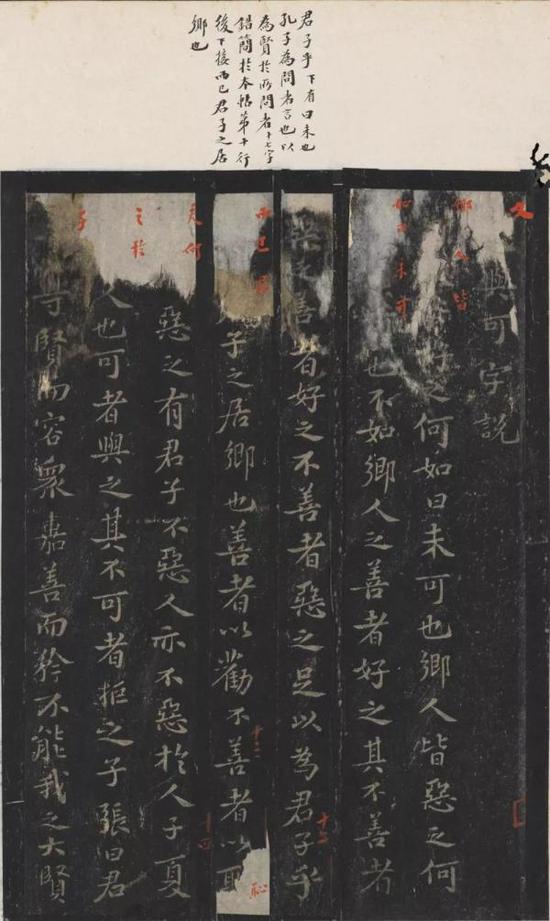 君子乎下有曰未也
孔子為問者言也以
為賢於所問者十七字
錯簡於本帖第十行
後下接而已君子之居
鄉也
文與可字說
鄉人皆好之何如曰未可也鄉人皆惡之何
如曰未可也不如鄉人之善者好之其不善者
惡之善者好之不善者惡之足以為君子乎
十二
而已君子之居鄉也善者以勸不善者以恥
十三
夫何惡之有君子不惡人亦不惡於人子夏
十四
之於人也可者與之其不可者拒之子張曰君
子尊賢而容眾嘉善而矜不能我之大賢